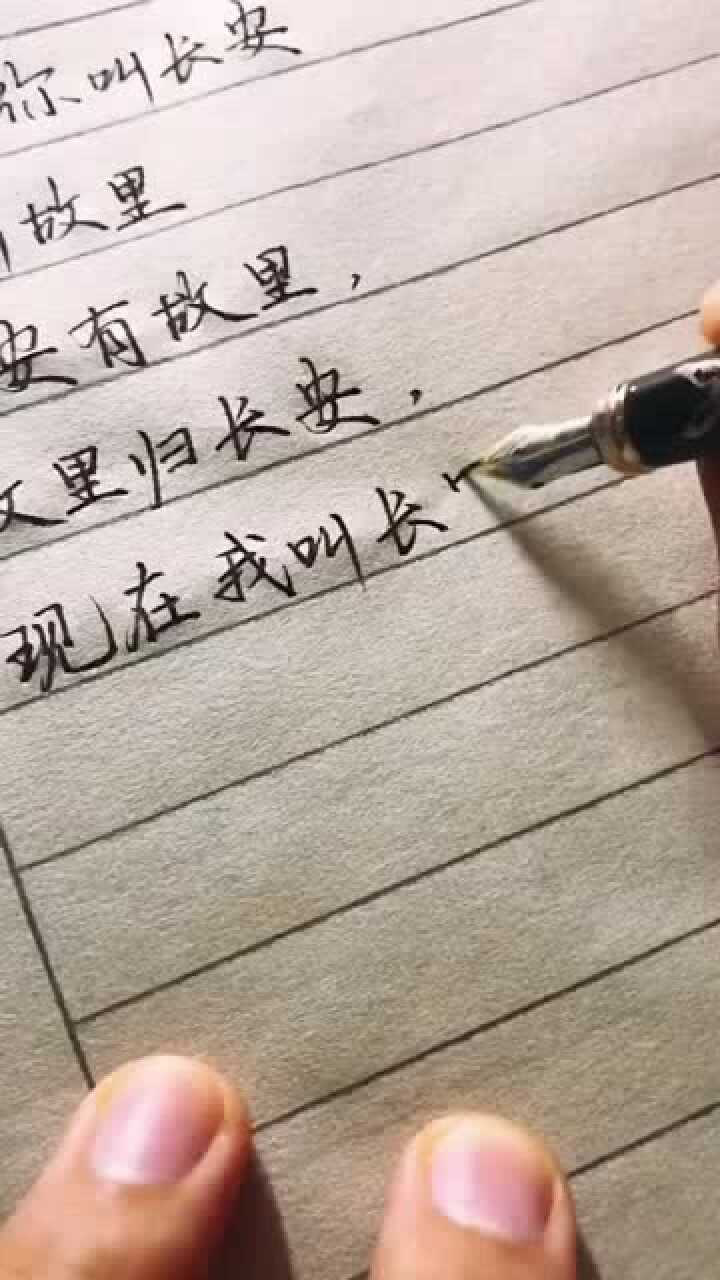 你叫长安
故里
安有故里，
故里归长安，
现在我叫长